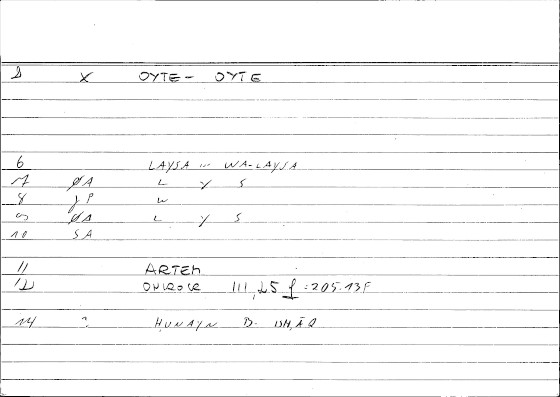 X OYTE - OYTE
6 LAYSA - WA-LAYSA
7 ØA L Y S
8 γP W
ØA L Y S
10 SA
11 ARTEM
12 III, 25 f = 205.13F
14 ? HUNAYN B. ISḤĀQ